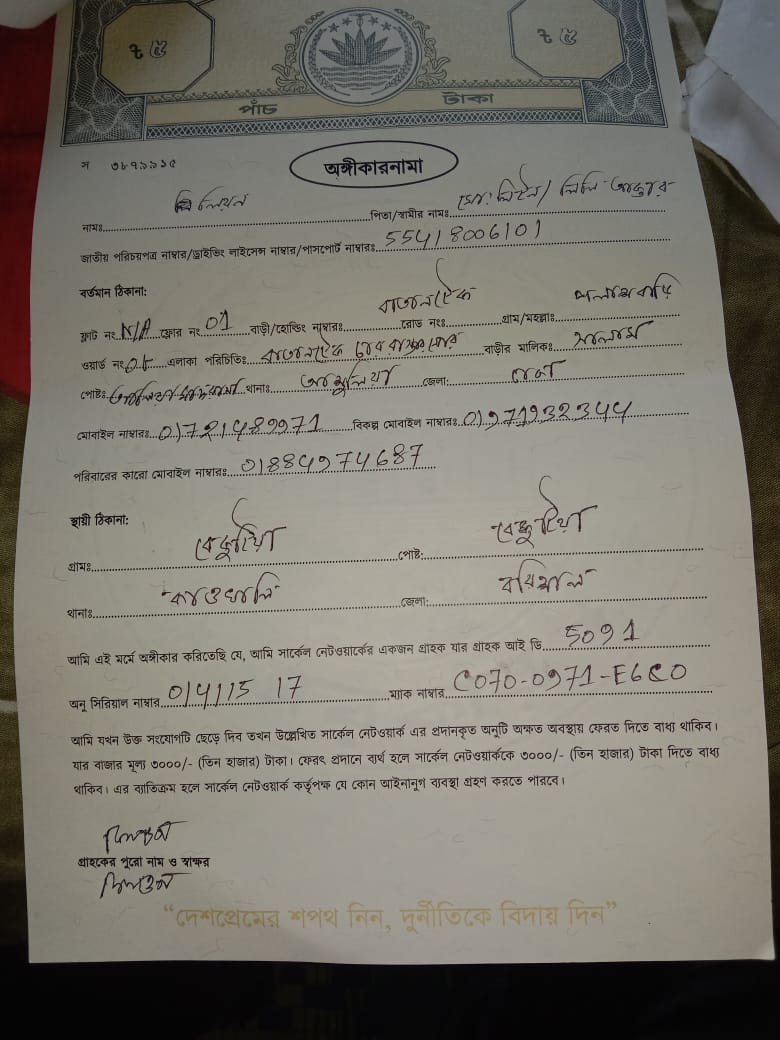 ৳ ৫ ৳ ৫
পাঁচ টাকা
স ৩৮৭৯৯১৫
অঙ্গীকারনামা
নামঃ লিয়ন পিতা/স্বামীর নামঃ মোঃ লিটন/ লিলি আক্তার
জাতীয় পরিচয়পত্র নাম্বার/ড্রাইভিং লাইসেন্স নাম্বার/পাসপোর্ট নাম্বারঃ 55418006101
বর্তমান ঠিকানা:
ফ্লাট নং N/A ফ্লোর নং 01 বাড়ী/হোল্ডিং নাম্বারঃ রোড নংঃ গ্রাম/মহল্লাঃ পলাশবাড়ি
ওয়ার্ড নং 08 এলাকা পরিচিতিঃ বাড়ীর মালিকঃ সালাম
পোষ্টঃ থানাঃ আশুলিয়া জেলা: ঢাকা
মোবাইল নাম্বারঃ 01721489971 বিকল্প মোবাইল নাম্বারঃ 01971932344
পরিবারের কারো মোবাইল নাম্বারঃ 01884974687
স্থায়ী ঠিকানা:
গ্রামঃ বেকুটিয়া পোষ্ট: বেকুটিয়া
থানাঃ কাওখালি জেলা: বরিশাল
আমি এই মর্মে অঙ্গীকার করিতেছি যে, আমি সার্কেল নেটওয়ার্কের একজন গ্রাহক যার গ্রাহক আই ডি 5091
অনু সিরিয়াল নাম্বার 0141115 17 ম্যাক নাম্বার C070-0971-E6C0
আমি যখন উক্ত সংযোগটি ছেড়ে দিব তখন উল্লেখিত সার্কেল নেটওয়ার্ক এর প্রদানকৃত অনুটি অক্ষত অবস্থায় ফেরত দিতে বাধ্য থাকিব।
যার বাজার মূল্য ৩০০০/- (তিন হাজার) টাকা। ফেরৎ প্রদানে ব্যর্থ হলে সার্কেল নেটওয়ার্ককে ৩০০০/- (তিন হাজার) টাকা দিতে বাধ্য
থাকিব। এর ব্যতিক্রম হলে সার্কেল নেটওয়ার্ক কর্তৃপক্ষ যে কোন আইনানুগ ব্যবস্থা গ্রহণ করতে পারবে।
গ্রাহকের পুরো নাম ও স্বাক্ষর
“দেশপ্রেমের শপথ নিন, দুর্নীতিকে বিদায় দিন”